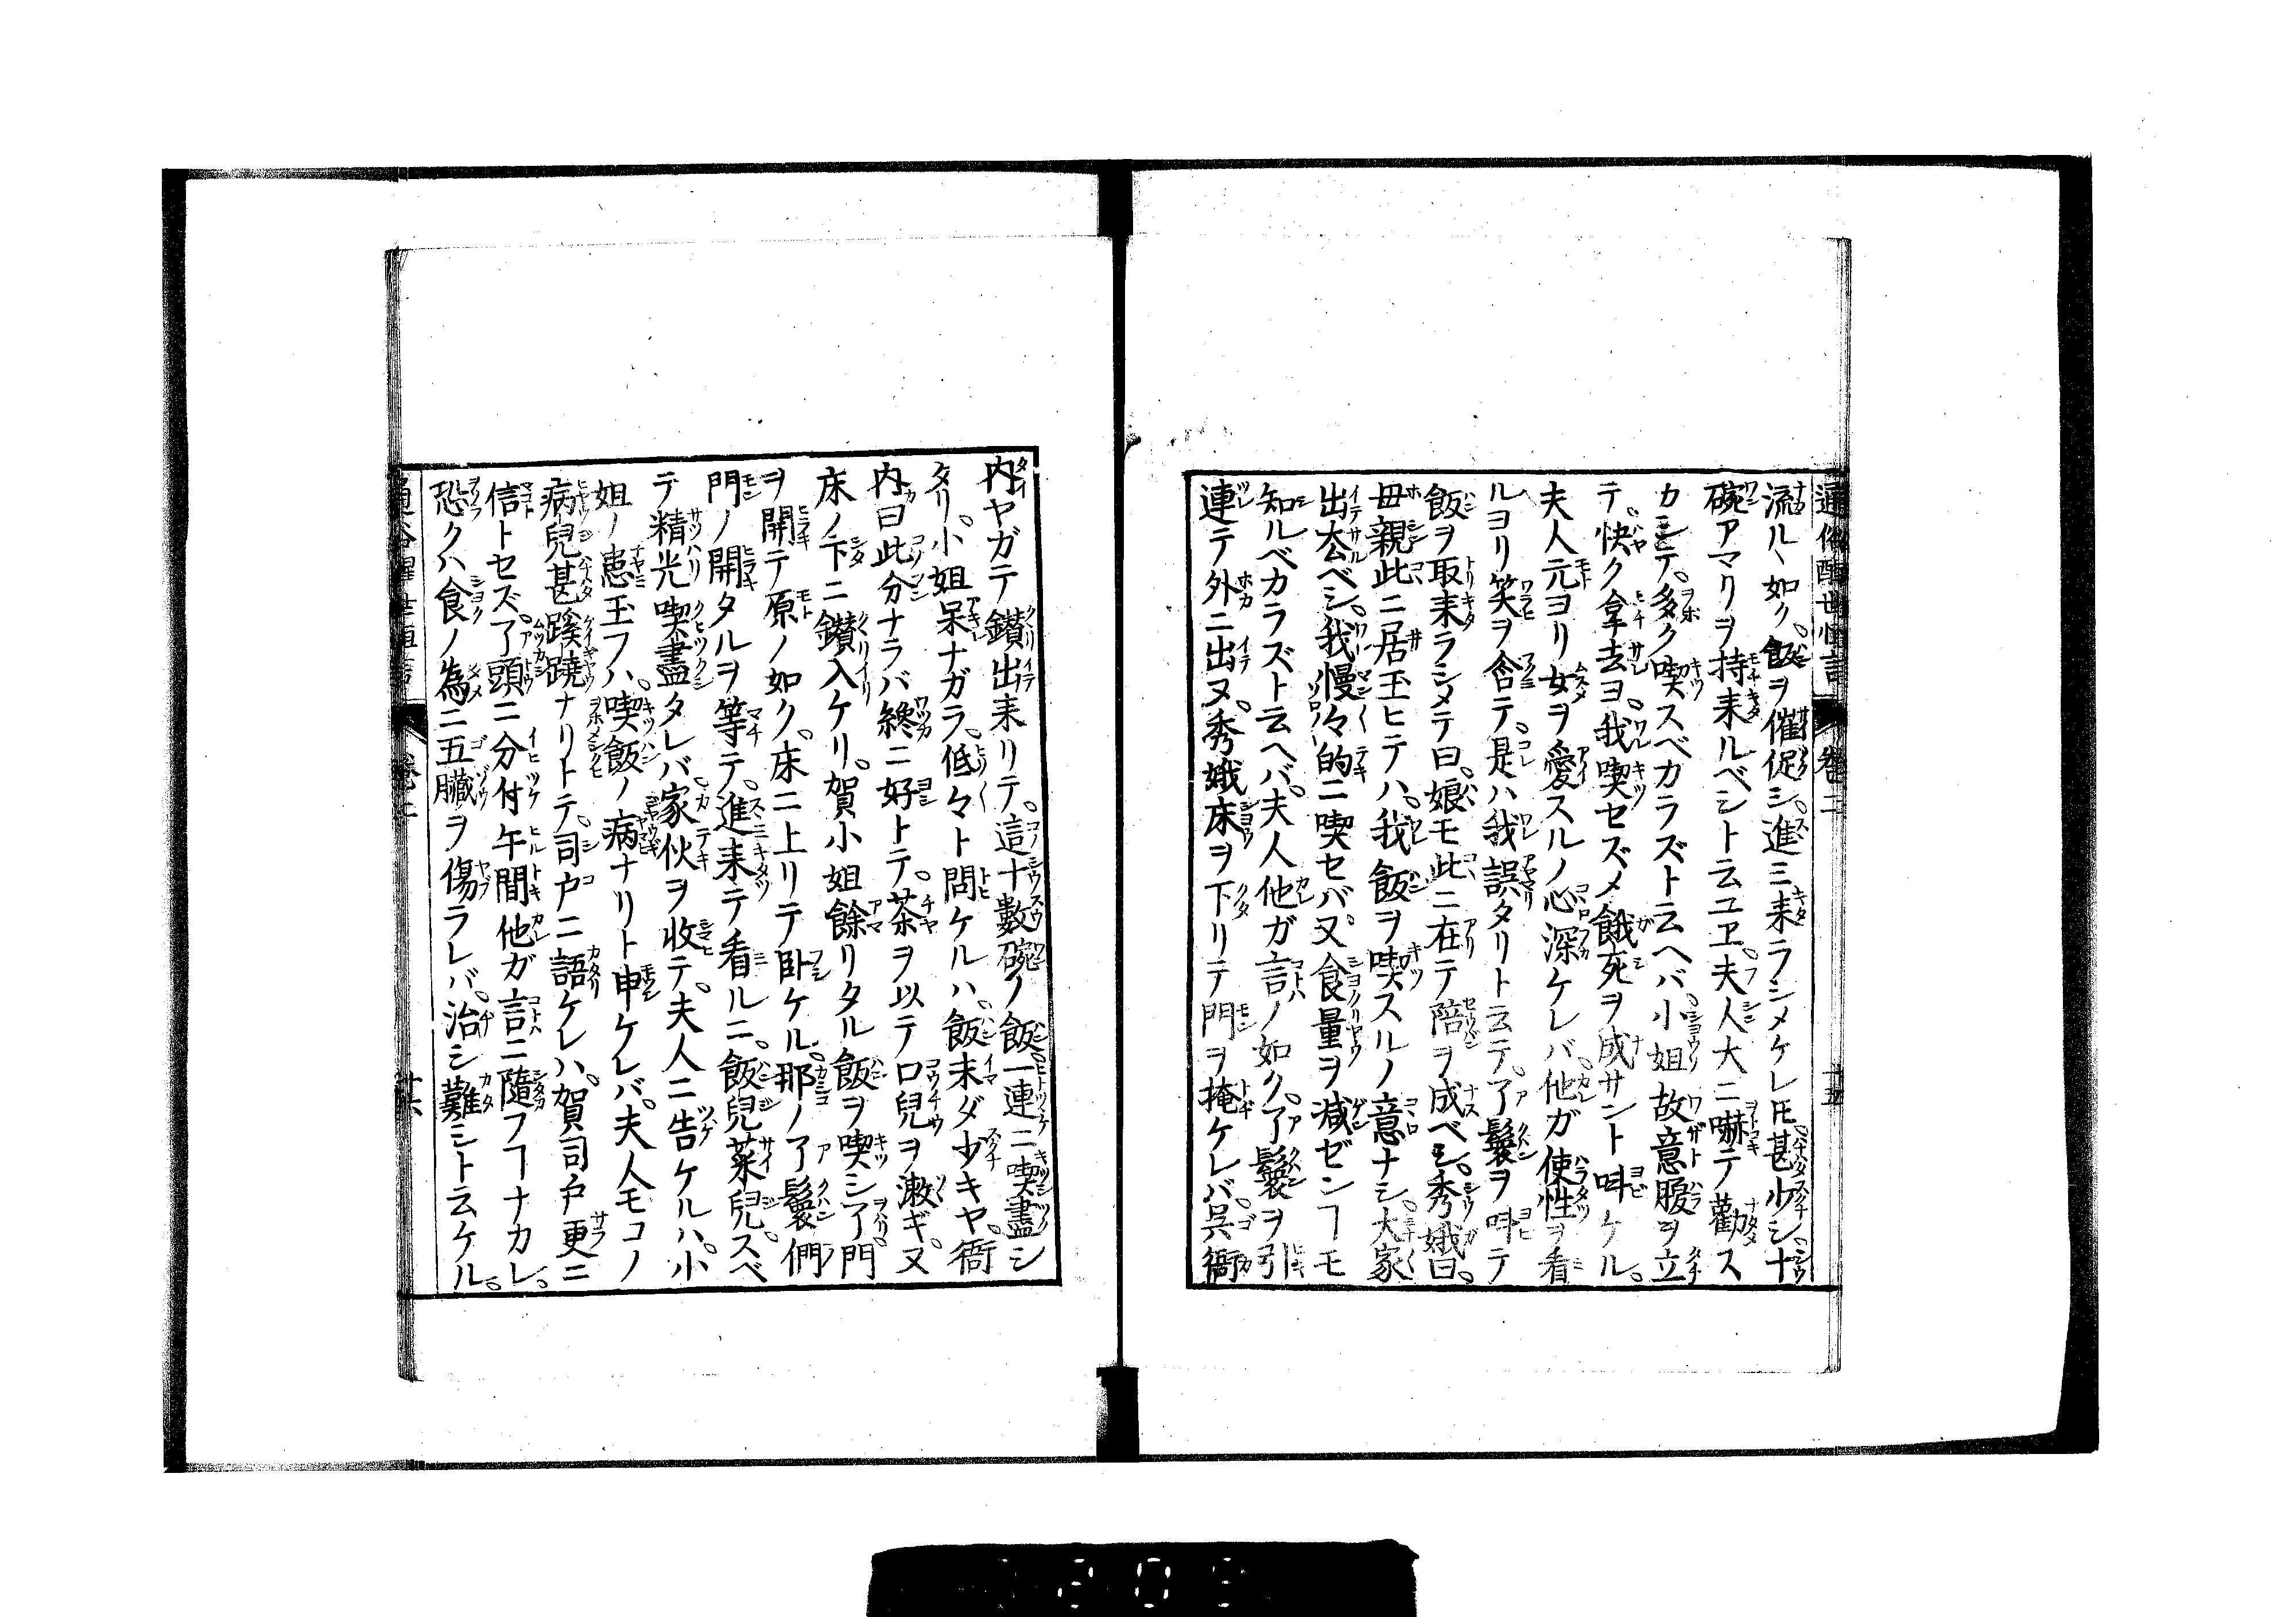 通俗醒世恒言 卷二 十五
流ルヽ如ク。飯ヲ催促シ。進ミ来ラシメケレ𪜈。甚少シ。十
碗アマリヲ持来ルベシト云ユヱ。夫人大ニ嚇テ勸ス
カシテ。多ク喫スベカラズト云ヘバ。小姐故意腹ヲ立
テ。快ク拿去ヨ。我喫セズメ餓死ヲ成サント呌ケル。
夫人元ヨリ女ヲ愛スルノ心深ケレバ。他ガ使性ヲ看
ルヨリ笑ヲ含テ。是ハ我誤タリト云テ。了鬟ヲ呌テ
飯ヲ取来ラシメテ曰。娘モ此ニ在テ陪ヲ成ベシ。秀娥曰。
母親此ニ居玉ヒテハ。我飯ヲ喫スルノ意ナシ。大家
出去ベシ。我慢々的ニ喫セバ。又食量ヲ減ゼンヿモ
知ルベカラズト云ヘバ。夫人他ガ言ノ如ク。了鬟ヲ引
連テ外ニ出ヌ。秀娥床ヲ下リテ門ヲ掩ケレバ。呉衙
内ヤガテ鑚出来リテ。這十數碗ノ飯。一連ニ喫盡シ
タリ。小姐呆ナガラ。低々ト問ケルハ。飯未ダ少キヤ。衙
内曰此分ナラバ纔ニ好トテ。茶ヲ以テ口兒ヲ漱ギ。又
床ノ下ニ鑚入ケリ。賀小姐餘リタル飯ヲ喫シ了門
ヲ開テ原ノ如ク。床ニ上リテ卧ケル。那ノ了鬟們
門ノ開タルヲ等テ。進来テ看ルニ。飯兒菜兒。スベ
テ精光喫盡タレバ。家伙ヲ收テ。夫人ニ告ケルハ。小
姐ノ患玉フハ。喫飯ノ病ナリト申ケレバ。夫人モコノ
病兒甚蹊蹺ナリトテ。司戸ニ語ケレハ。賀司戸更ニ
信トセズ。了頭ニ分付午間他ガ言ニ隨フヿナカレ。
恐クハ食ノ為ニ五臓ヲ傷ラレバ。治シ難シト云ケル。